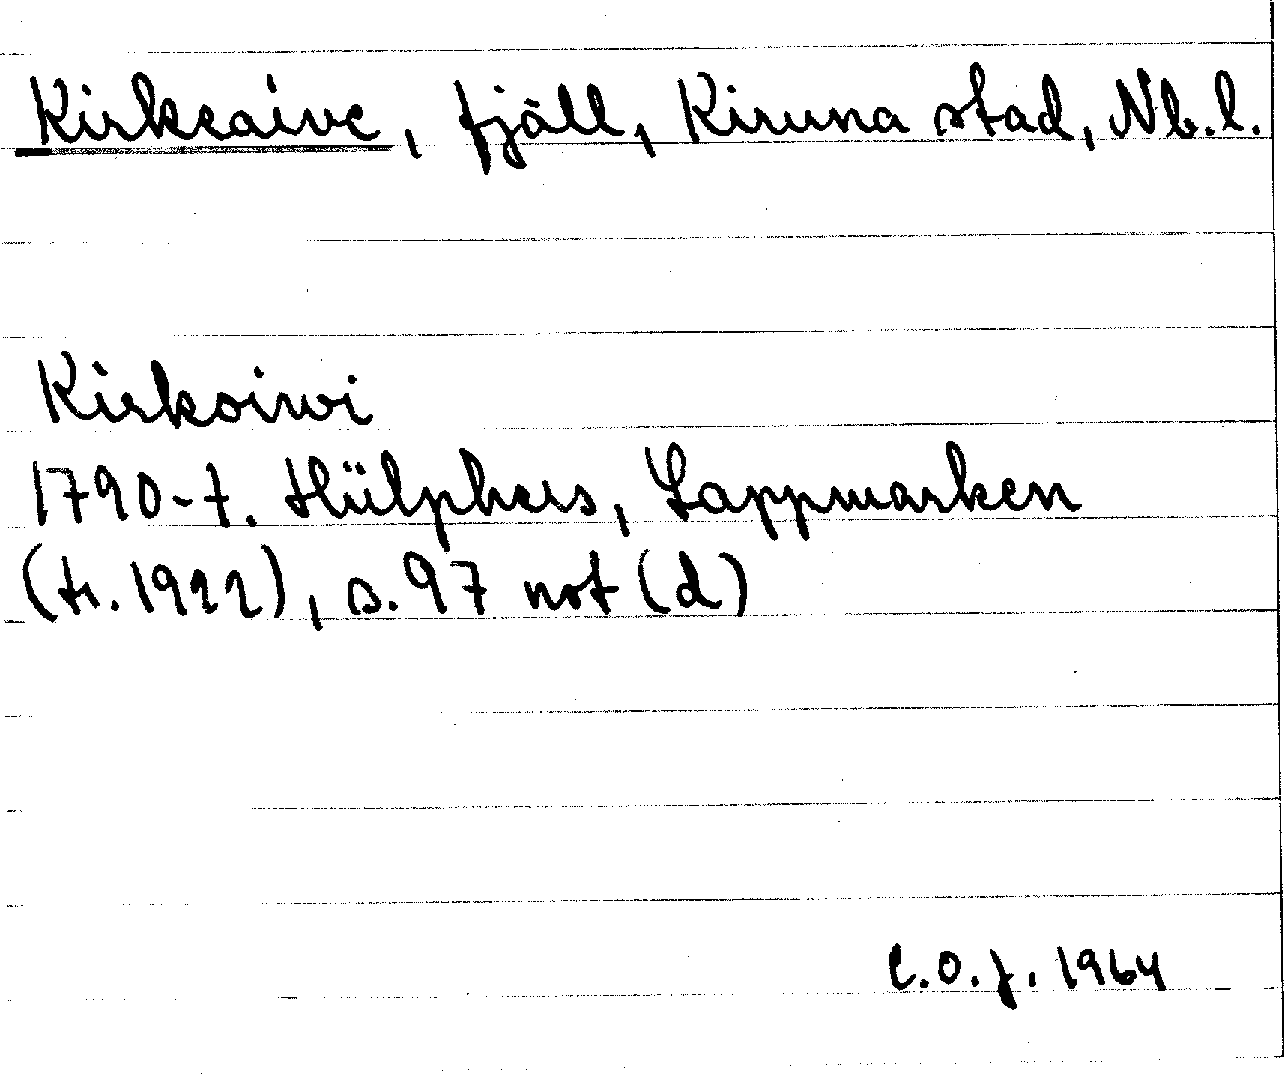 Kirkeaive, fjäll, Kiruna stad, Nb.l.
Kirkoiwi
1790-t. Hülphers, Lappmarken
(tr. 1922), s. 97 not (d)
C.O.J. 1964